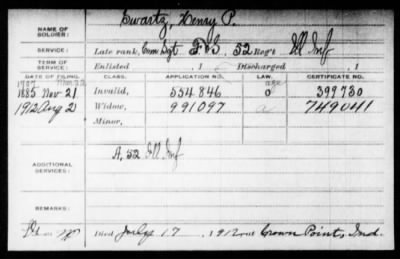 Swartz, Henry P.
NAME OF SOLDIER:
SERVICE: Late rank, Com Sgt F&S, 52 Reg't Ill Inf
TERM OF SERVICE: Enlisted , 1 Discharged , 1
DATE OF FILING. CLASS. APPLICATION NO. LAW. CERTIFICATE NO.
1885 Nov 21 Invalid, 554.846 O 399730
1912 Aug 2 Widow, 991097 a 749041
Minor,
ADDITIONAL SERVICES: A. 52 Ill Inf
REMARKS:
Died July 17, 1912, at Crown Point, Ind.